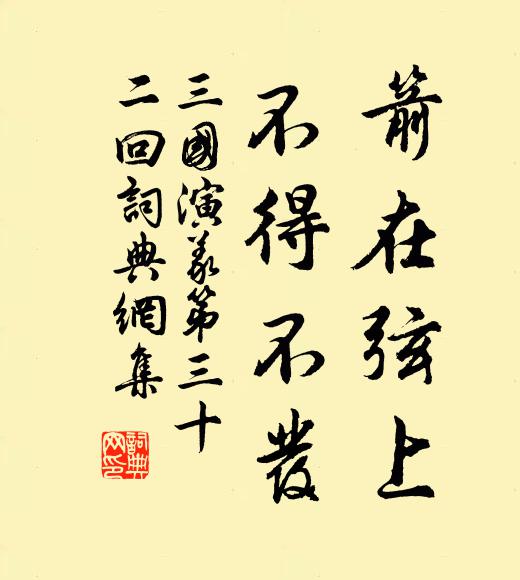 箭在弦上
不得不發
三國演義第三十
二回詞典網集
詞典網印